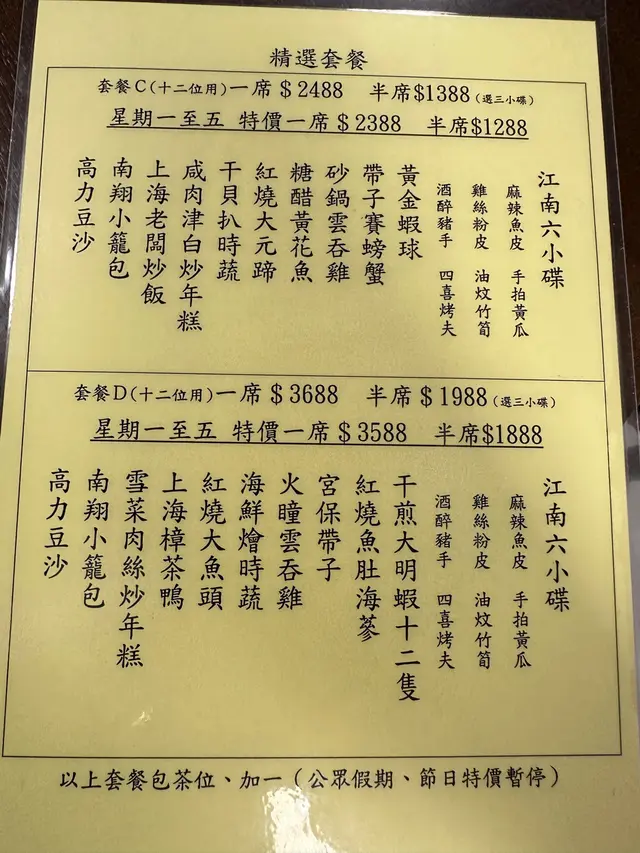 精選套餐
套餐C(十二位用)一席$2488 半席$1388(選三小碟)
星期一至五 特價一席$2388 半席$1288
江南六小碟
麻辣魚皮 手拍黃瓜
雞絲粉皮 油炆竹筍
酒醉豬手 四喜烤夫
黃金蝦球
帶子賽螃蟹
砂鍋雲吞雞
糖醋黃花魚
紅燒大元蹄
干貝扒時蔬
咸肉津白炒年糕
上海老闆炒飯
南翔小籠包
高力豆沙
套餐D(十二位用)一席$3688 半席$1988(選三小碟)
星期一至五 特價一席$3588 半席$1888
江南六小碟
麻辣魚皮 手拍黃瓜
雞絲粉皮 油炆竹筍
酒醉豬手 四喜烤夫
干煎大明蝦十二隻
紅燒魚肚海蔘
宮保帶子
火瞳雲吞雞
海鮮燴時蔬
紅燒大魚頭
上海樟茶鴨
雪菜肉絲炒年糕
南翔小籠包
高力豆沙
以上套餐包茶位、加一(公眾假期、節日特價暫停)